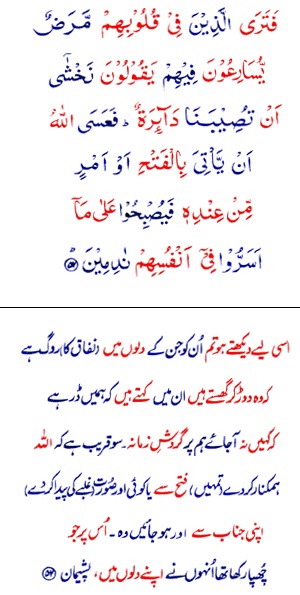 فَتَرَى الَّذِيْنَ فِيْ قُلُوْبِهِمْ مَّرَضٌ
يُّسَارِعُوْنَ فِيْهِمْ يَقُوْلُوْنَ نَخْشٰٓى
اَنْ تُصِيْبَنَا دَآئِرَةٌ ؕ فَعَسَى اللّٰهُ
اَنْ يَّاْتِيَ بِالْفَتْحِ اَوْ اَمْرٍ
مِّنْ عِنْدِهٖ فَيُصْبِحُوْا عَلٰى مَآ
اَسَرُّوْا فِيْٓ اَنْفُسِهِمْ نٰدِمِيْنَ ﴿۵۲﴾
اسی لیے دیکھتے ہو تم اُن کو جن کے دلوں میں (نفاق کا) روگ ہے
کہ وہ دوڑ کر گھستے ہیں ان میں کہتے ہیں کہ ہمیں ڈر ہے
کہ کہیں نہ آجائے ہم پر گردشِ زمانہ۔ سو قریب ہے کہ اللہ
ہمکنار کر دے (تمہیں) فتح سے یا کوئی اور صُورت (غلبے کی پیدا کر دے)
اپنی جناب سے اور ہو جائیں وہ ۔ اُس پر جو
چُھپا رکھا تھا اُنہوں نے اپنے دلوں میں، پشیمان ﴿۵۲﴾